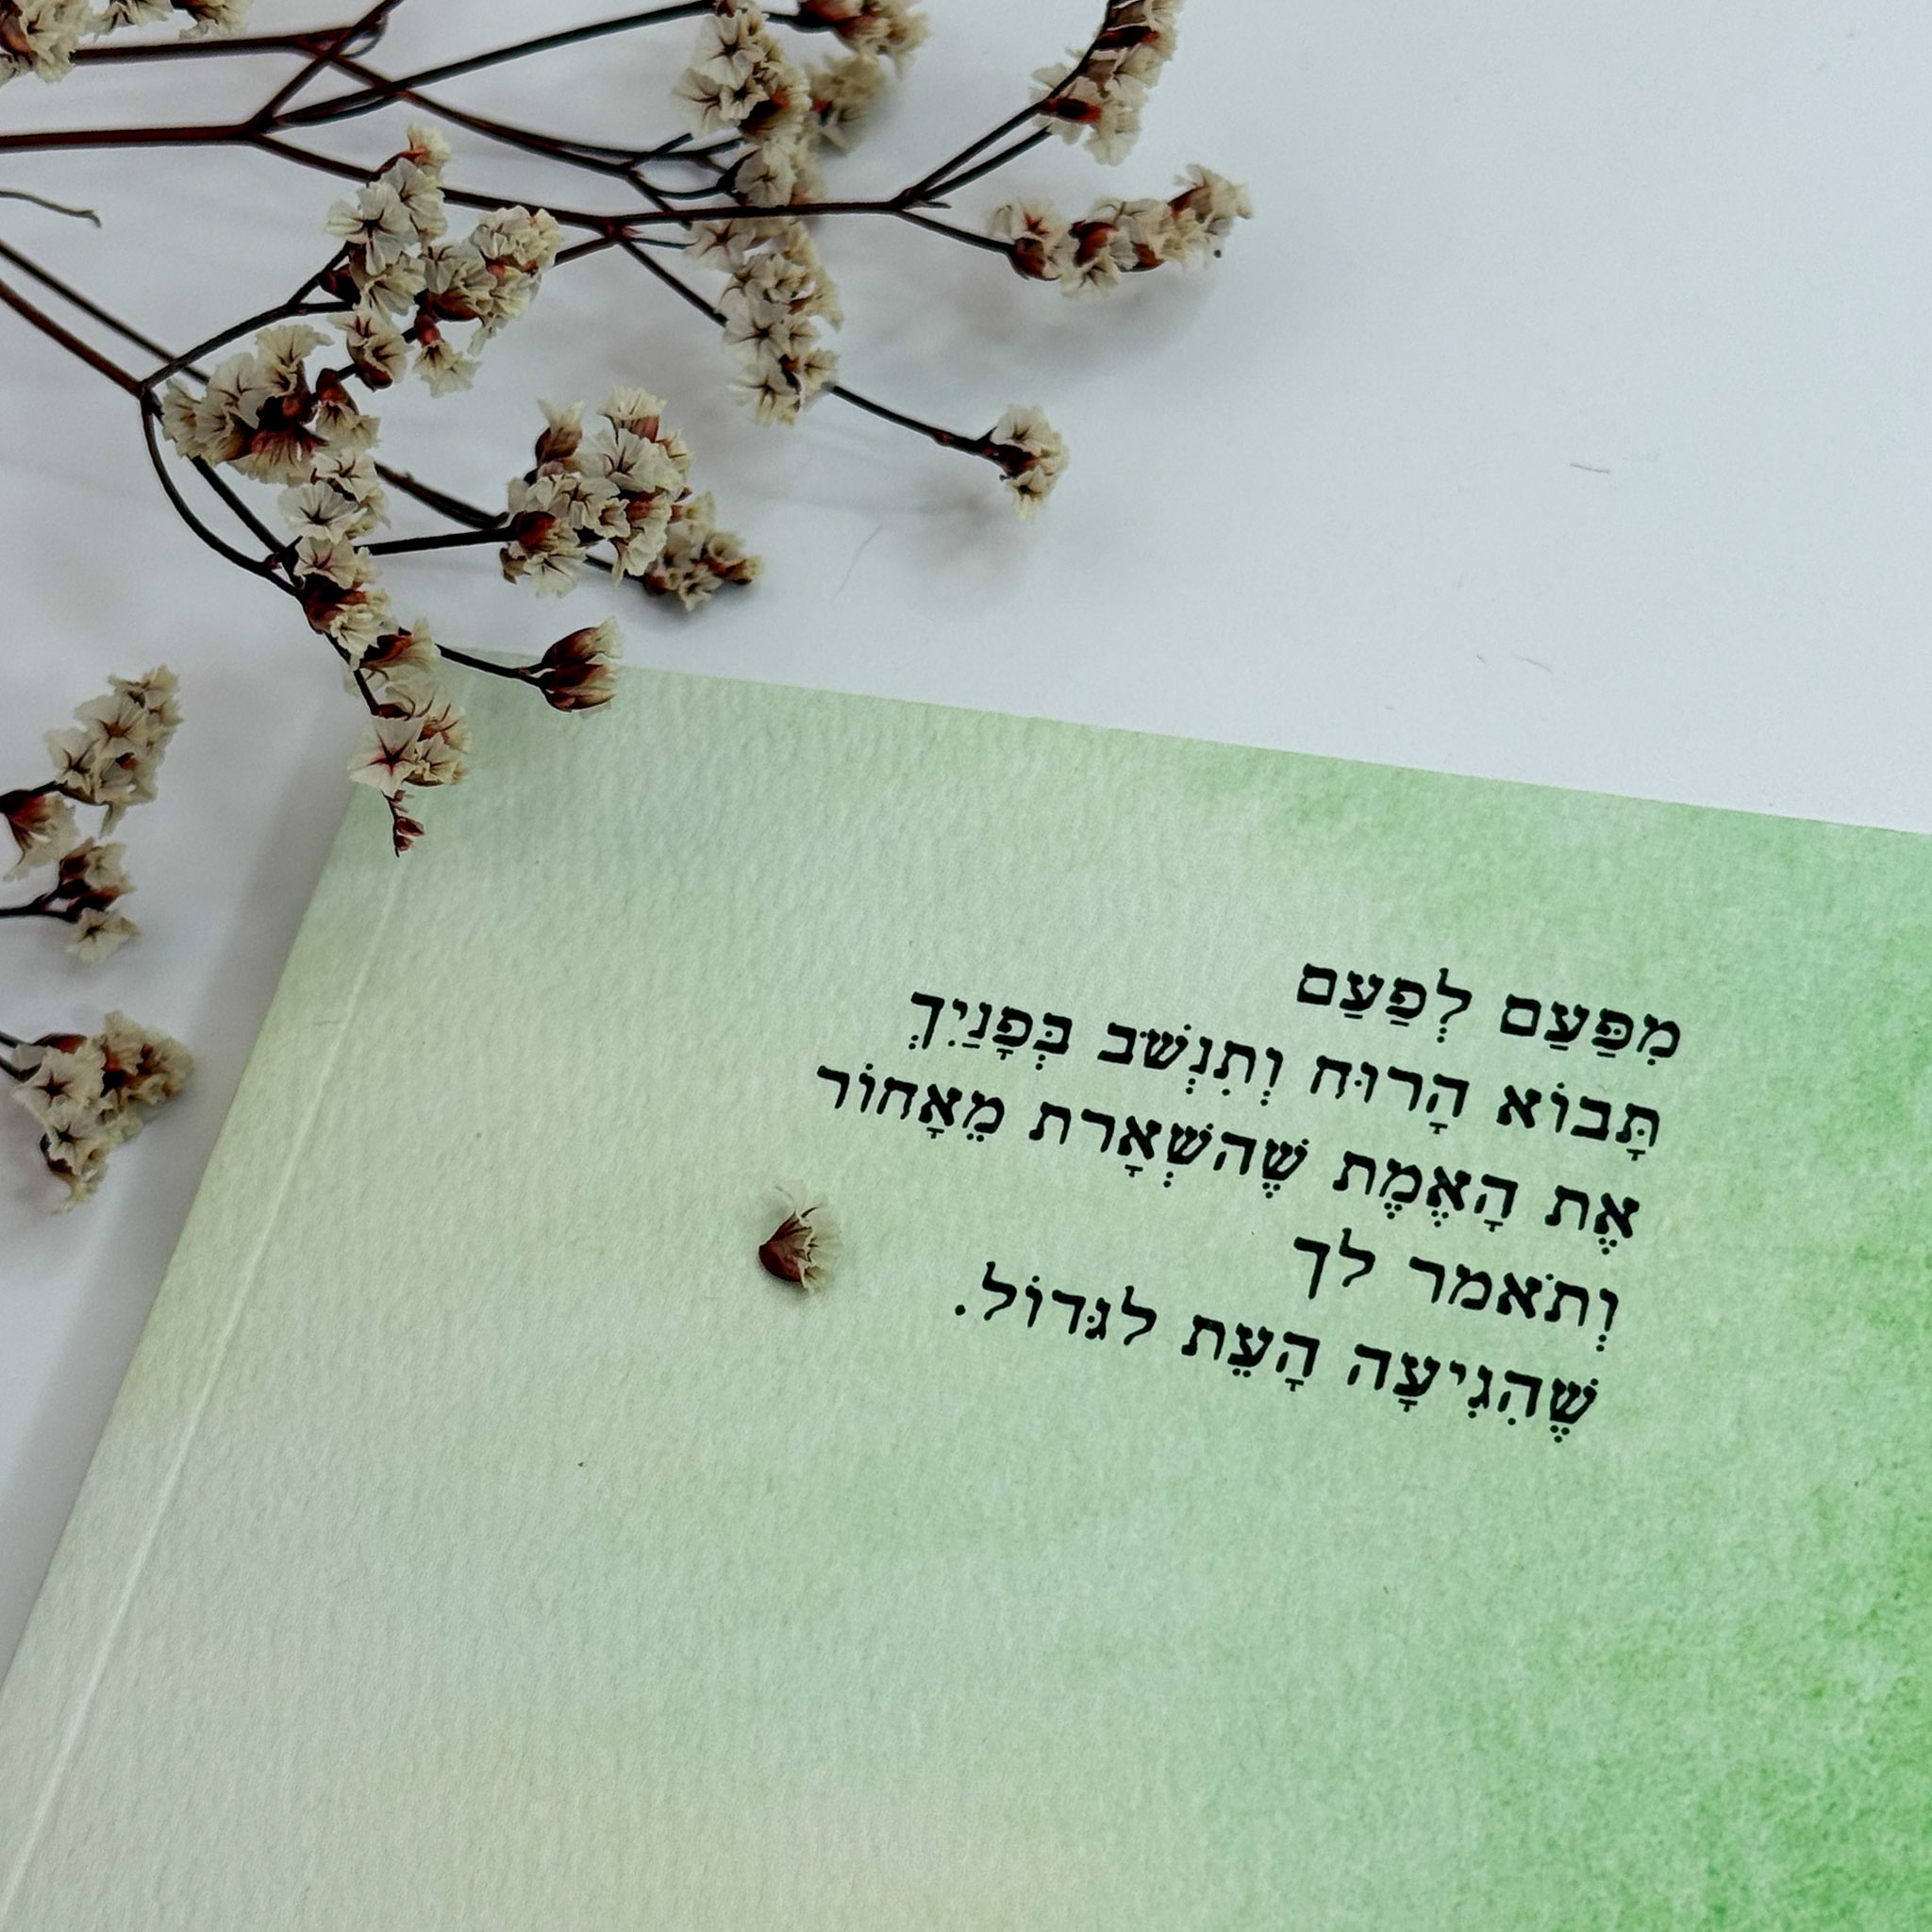 מִפַּעַם לְפַעַם
תָּבוֹא הָרוּחַ וְתִנְשֹׁב בְּפָנַיִךְ
אֶת הָאֱמֶת שֶׁהשְׁאָרת מֵאָחוֹר
וְתֹאמר לך
שֶׁהִגִיעָה הָעֵת לגּדוֹל.